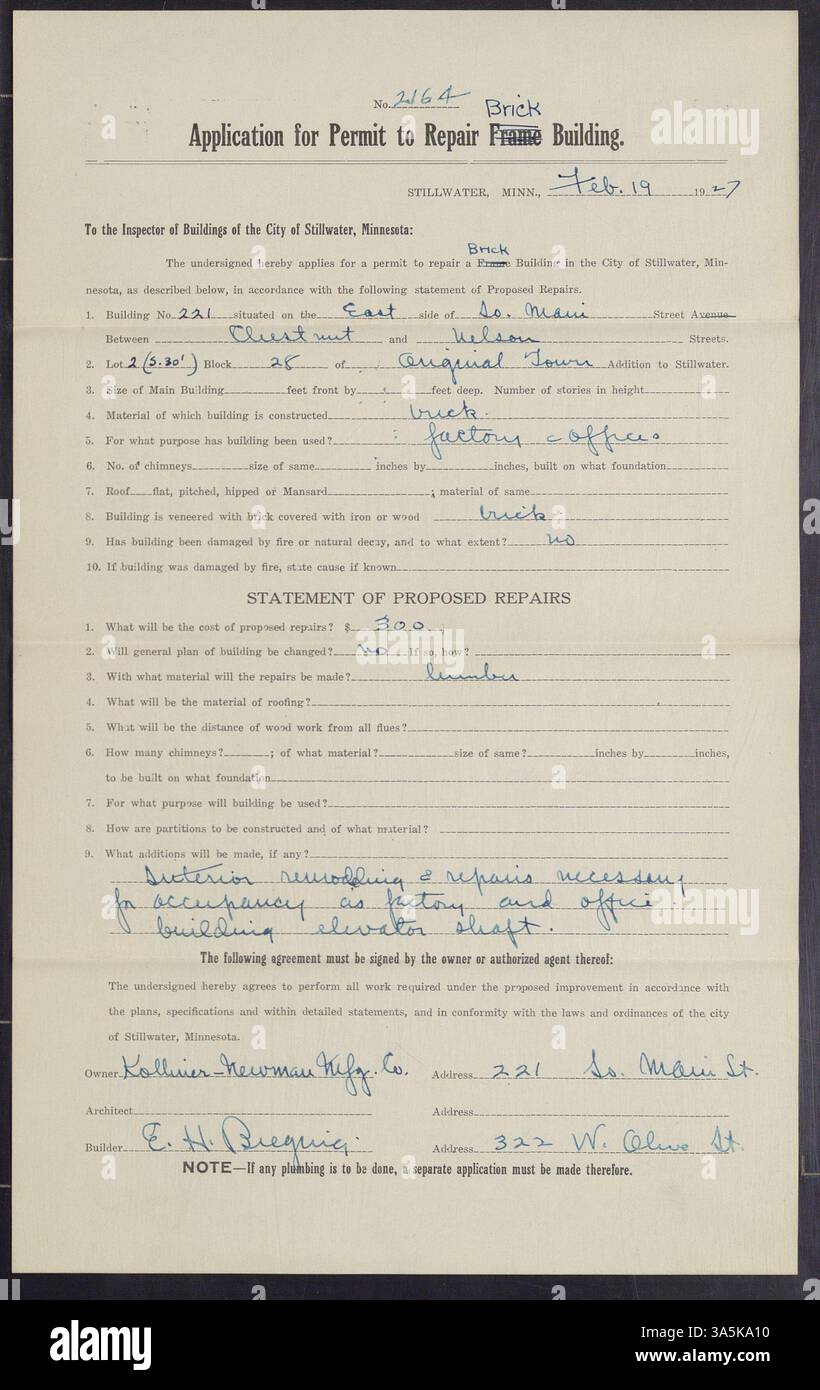 No. 2164
Brick
Application for Permit to Repair Frame Building.
STILLWATER, MINN., Feb. 19 1927
To the Inspector of Buildings of the City of Stillwater, Minnesota:
Brick
The undersigned hereby applies for a permit to repair a Frame Building in the City of Stillwater, Min-
nesota, as described below, in accordance with the following statement of Proposed Repairs.
1. Building No. 221 situated on the East side of So. Main Street Avenue
Between Chestnut and Nelson Streets.
2. Lot 2 (S. 30') Block 28 of Original Town Addition to Stillwater.
3. Size of Main Building feet front by feet deep. Number of stories in height
4. Material of which building is constructed brick
5. For what purpose has building been used? factory & offices
6. No. of chimneys size of same inches by inches, built on what foundation
7. Roof flat, pitched, hipped or Mansard ; material of same
8. Building is veneered with brick covered with iron or wood brick
9. Has building been damaged by fire or natural decay, and to what extent? no
10. If building was damaged by fire, state cause if known
STATEMENT OF PROPOSED REPAIRS
1. What will be the cost of proposed repairs? $ 300
2. Will general plan of building be changed? no If so, how?
3. With what material will the repairs be made? lumber
4. What will be the material of roofing?
5. What will be the distance of wood work from all flues?
6. How many chimneys? ; of what material? size of same? inches by inches,
to be built on what foundation
7. For what purpose will building be used?
8. How are partitions to be constructed and of what material?
9. What additions will be made, if any?
Interior remodeling & repairs necessary
for occupancy as factory and office
building elevator shaft.
The following agreement must be signed by the owner or authorized agent thereof:
The undersigned hereby agrees to perform all work required under the proposed improvement in accordance with
the plans, specifications and within detailed statements, and in conformity with the laws and ordinances of the city
of Stillwater, Minnesota.
Owner Kolliner-Newman Mfg. Co. Address 221 So. Main St.
Architect Address
Builder E. H. Address 322 W. Olive St.
NOTE—If any plumbing is to be done, a separate application must be made therefore.
alamy
Image ID: 3A5KA10
www.alamy.com